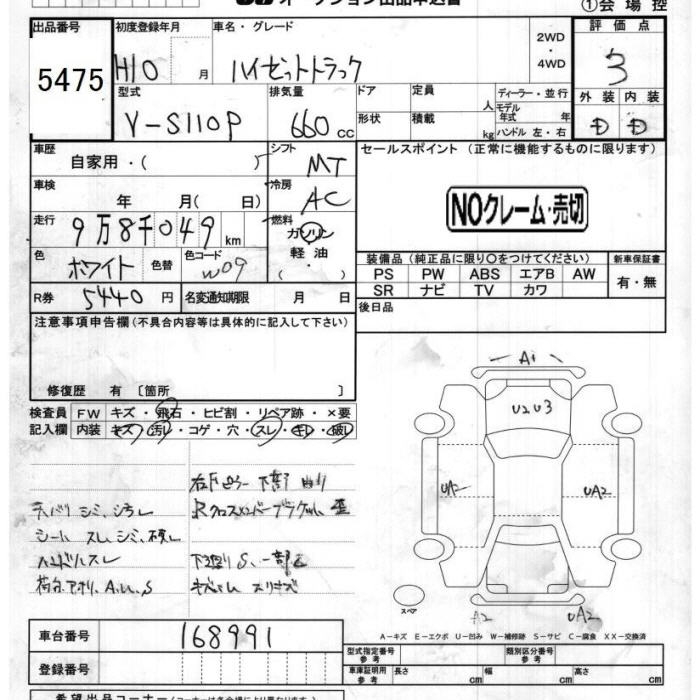 オークション出品申込書
①会場控
出品番号
5475
初度登録年月
H10 月
車名・グレード
ハイゼットトラック
2WD
・
4WD
評価点
3
型式
V-S110P
排気量
660 cc
ドア
定員
人
ディーラー・並行
モデル年式 年
形状
積載
kg
ハンドル 左・右
外装
内装
D
D
車歴
自家用・( )
シフト
MT
セールスポイント (正常に機能するものに限ります)
車検
年 月( 日)
冷房
AC
NOクレーム・売切
走行
9万8千049 km
燃料
ガソリン
軽油
・( )
色
ホワイト
色替
色コード
W09
装備品 (純正品に限り○をつけてください)
新車保証書
PS PW ABS エアB AW
SR ナビ TV カワ
有・無
R券
5440 円
名変通知期限 月 日
後日品
注意事項申告欄(不具合内容等は具体的に記入して下さい)
修復歴 有 〔箇所 〕
検査員
記入欄
FW キズ・飛石・ヒビ割・リペア跡・×要
内装 キズ・汚レ・コゲ・穴・スレ・キレ・破レ
A1
U2U3
UA2
UA2
A2
UA2
スペア
シート スレ シミ、破レ
ハンドルスレ
A-キズ E-エクボ U-凹み W-補修跡 S-サビ C-腐食 XX-交換済
車台番号
168991
型式指定番号
参考
類別区分番号
参考
登録番号
車庫証明用
参考
長さ cm
幅 cm
高さ cm
希望出品コーナー